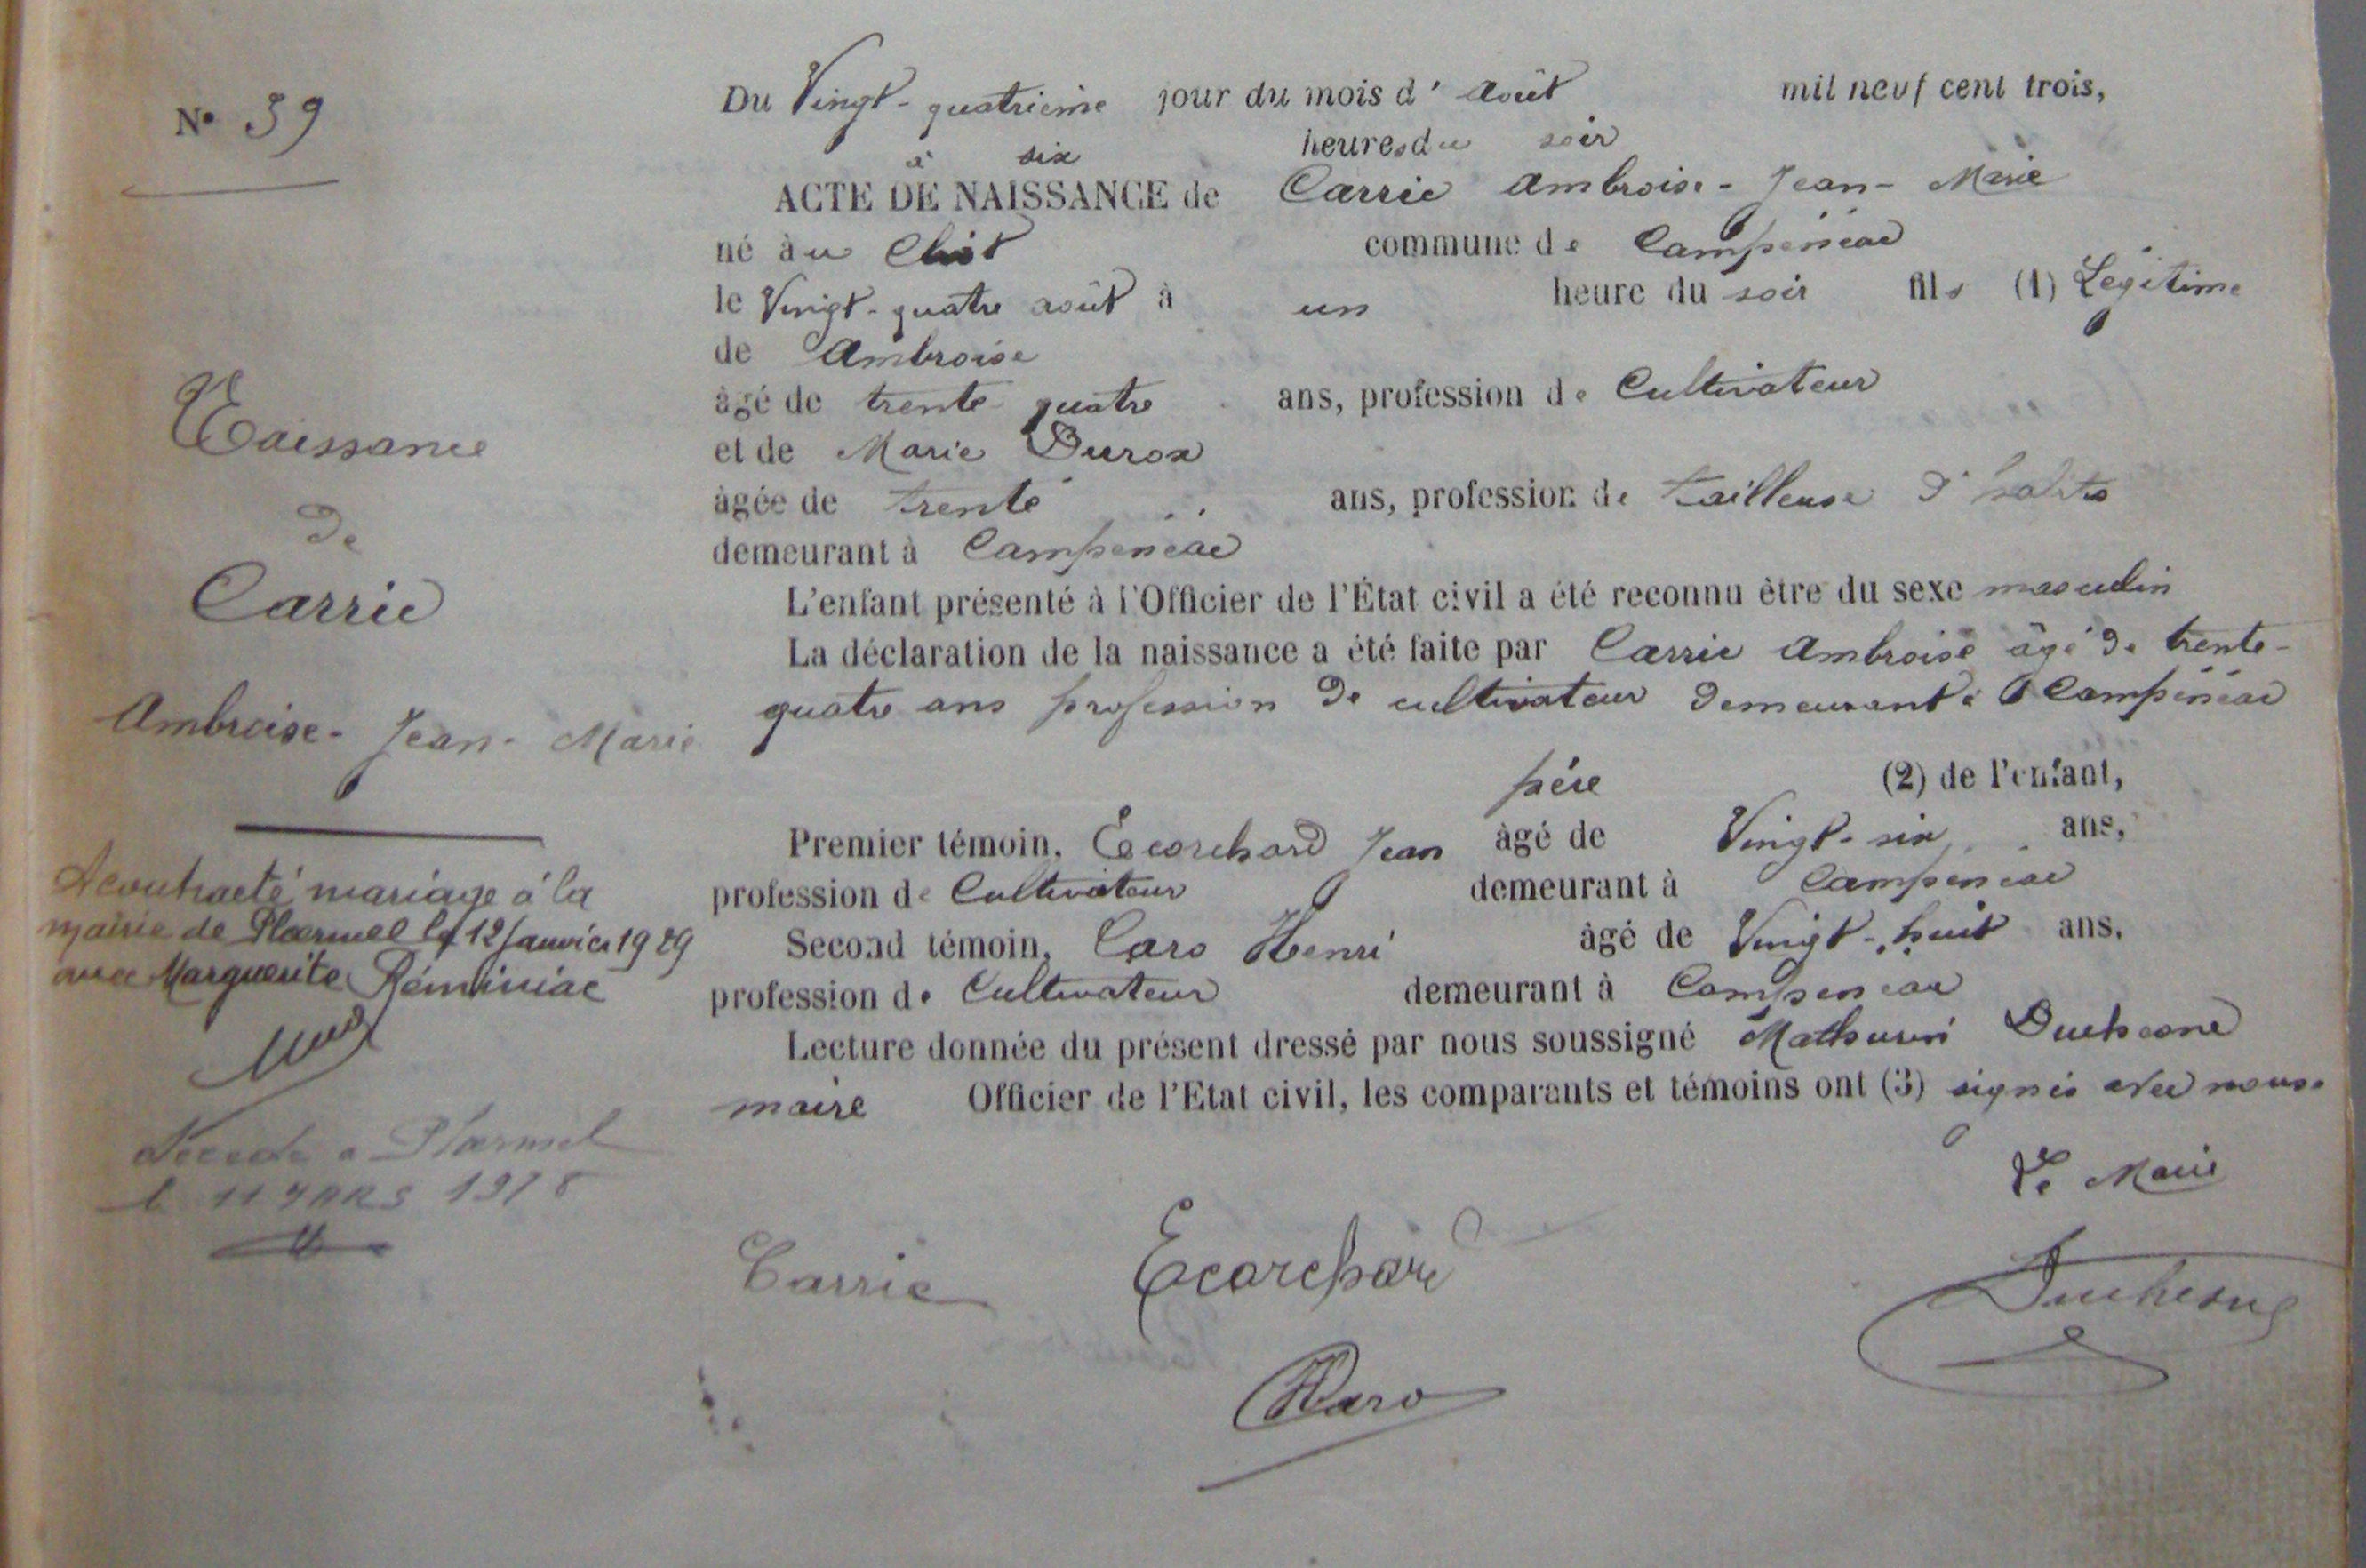 N° 39
Naissance
de
Carric
Ambroise-Jean-Marie
A contracté mariage à la
mairie de Ploërmel le 12 Janvier 1929
avec Marguerite Réminiac
Décédé à Ploërmel
le 11 MARS 1978
Du Vingt-quatrième jour du mois d'août mil neuf cent trois,
à six heures du soir
ACTE DE NAISSANCE de Carric Ambroise-Jean-Marie
né au commune de Campénéac
le Vingt-quatre août à un heure du soir fils (1) Légitime
de Ambroise
âgé de trente quatre ans, profession de Cultivateur
et de Marie Durox
âgée de trente ans, profession de tailleuse d'habits
demeurant à Campénéac
L'enfant présenté à l'Officier de l'État civil a été reconnu être du sexe masculin
La déclaration de la naissance a été faite par Carric Ambroise âgé de trente-
quatre ans profession de cultivateur demeurant à Campénéac
père (2) de l'enfant,
Premier témoin, Écorchard Jean âgé de Vingt-six ans,
profession de Cultivateur demeurant à Campénéac
Second témoin, Caro Henri âgé de Vingt-huit ans,
profession de Cultivateur demeurant à Campénéac
Lecture donnée du présent dressé par nous soussigné Mathurin Duchesne
maire Officier de l'Etat civil, les comparants et témoins ont (3) signés avec nous.
Le Maire
Carric Ecorchard Duchesne
HCaro